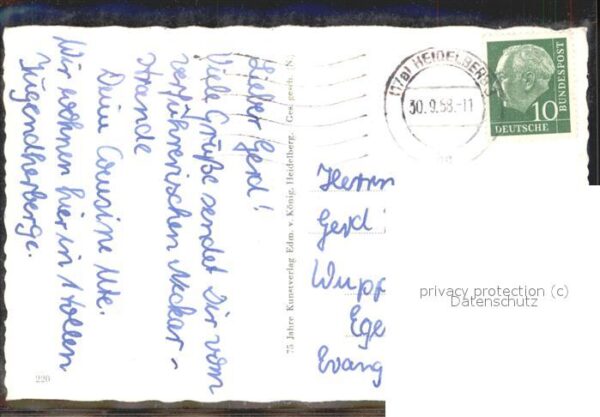 Lieber Gerd!
Viele Grüße sendet Dir vom
verführerischen Neckar-
strande
Deine Cousine Ute.
Wir wohnen hier in 1 tollen
Jugendherberge.
220
75 Jahre Kunstverlag Edm. v. König, Heidelberg. Ges. gesch. N.
(17a) HEIDELBERG
30.9.58.-11
10
DEUTSCHE
BUNDESPOST
Herrn
Gerd
Wupp
Ege
Evang
privacy protection (c)
Datenschutz